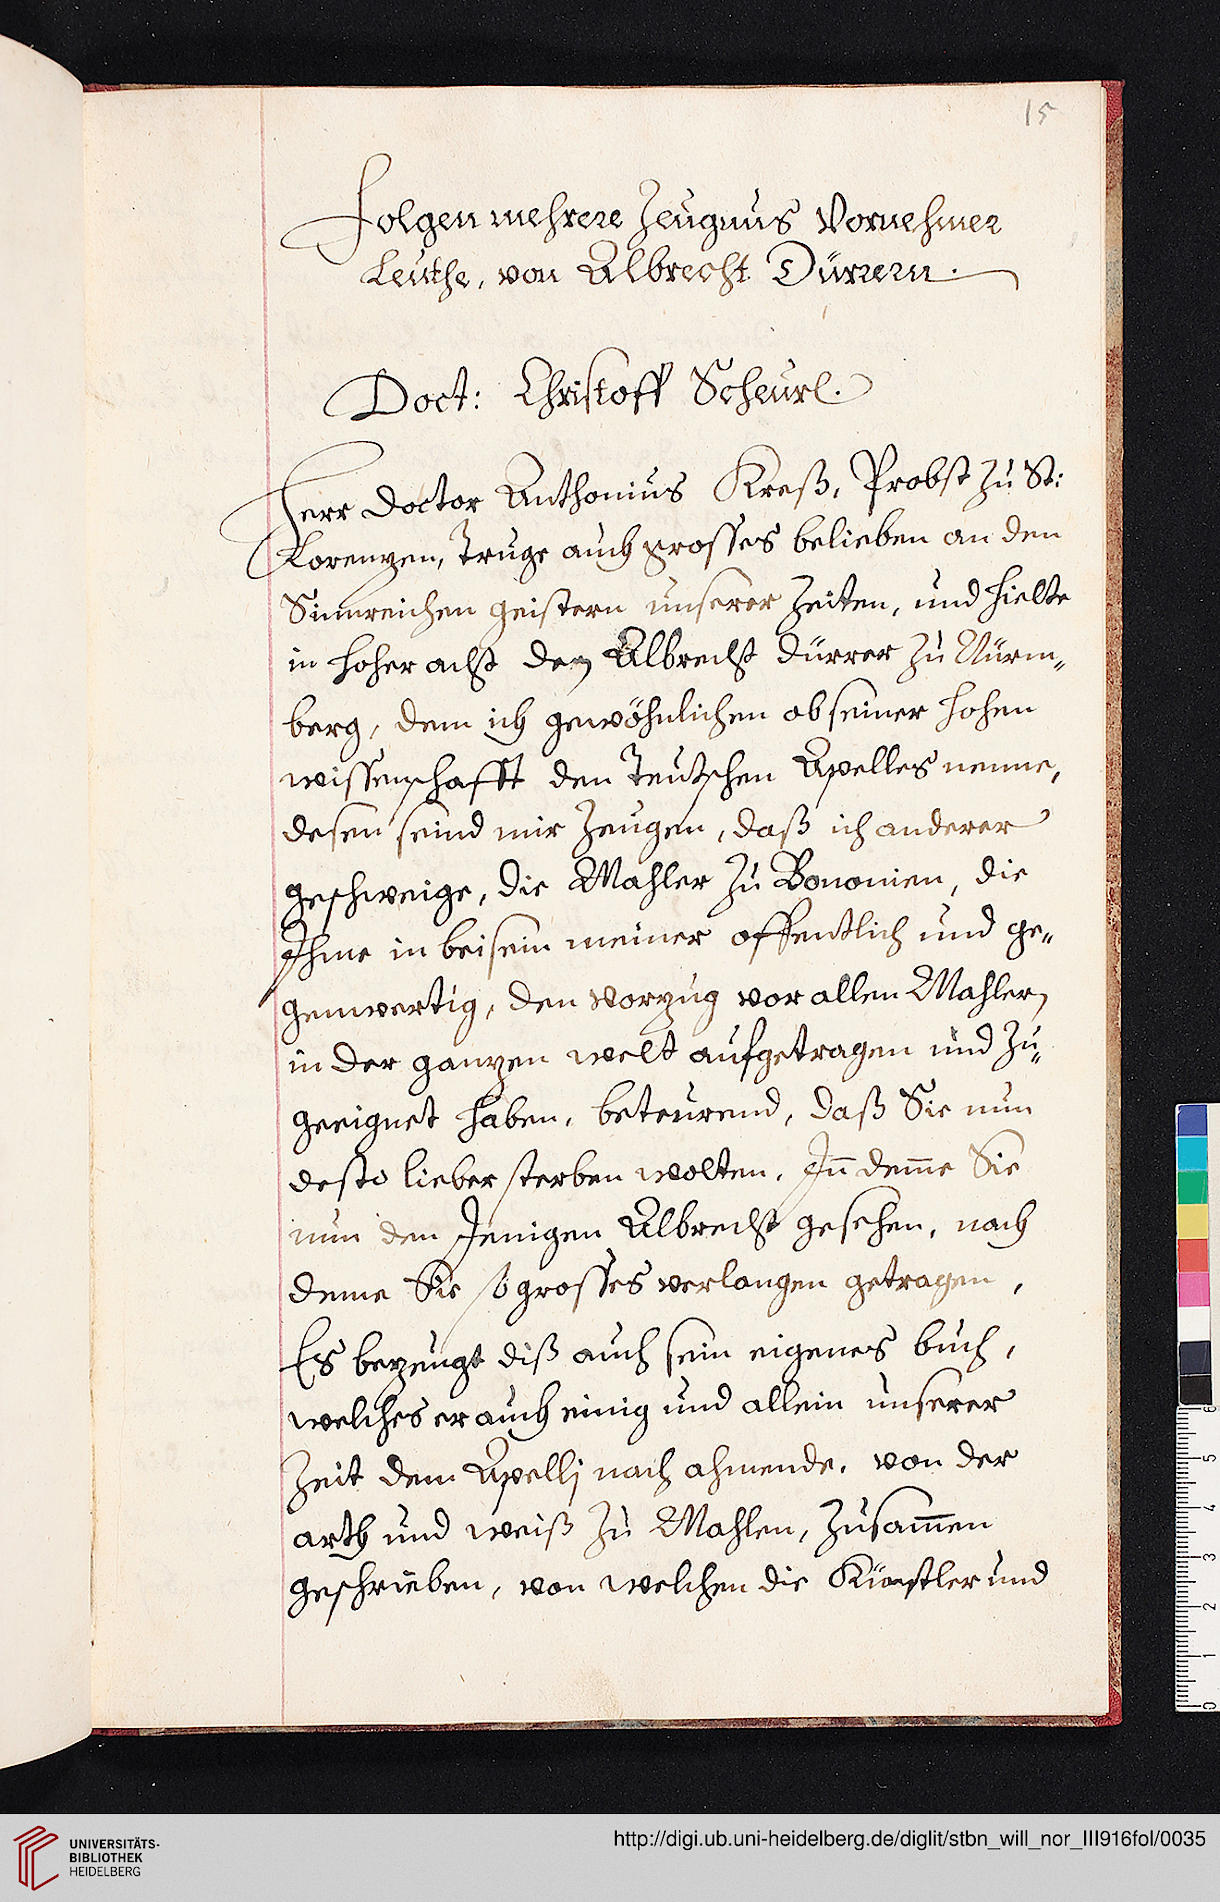 15
Folgen mehrere Zeugnus Vornehmer
Leuthe, von Albrecht Dürrern.
Doct: Christoff Scheurl.
Herr Doctor Anthonius Kreß, Probst zu St:
Lorenzen, Truge auch grosses belieben an den
Sinnreichen geistern unserer Zeiten, und hielte
in hoher acht den Albrecht Dürrer zu Nürm„
berg, dem ich gewöhnlichen ob seiner hohen
wissenschafft den Teutschen Apelles nenne,
desen seind mir Zeugen, daß ich anderer
geschweige, die Mahler zu Bononien, die
Ihme in beisein meiner offentlich und ge„
genwertig, den vorzug vor allen Mahlern
in der ganzen welt aufgetragen und zu„
geeignet haben, beteurend, daß Sie nun
desto lieber sterben wolten, In̄ dem̄e Sie
nun den Jenigen Albrecht gesehen, nach
deme Sie so grosses verlangen getragen,
Es bezeugt diß auch sein eigenes buch,
welches er auch einig und allein unserer
Zeit dem Apelli nach ahmende, von der
arth und weiß zu Mahlen, zusam̄en
geschrieben, von welchen die Künstler und
UNIVERSITÄTS-
BIBLIOTHEK
HEIDELBERG
http://digi.ub.uni-heidelberg.de/diglit/stbn_will_nor_III916fol/0035
6
5
4
3
2
1
0